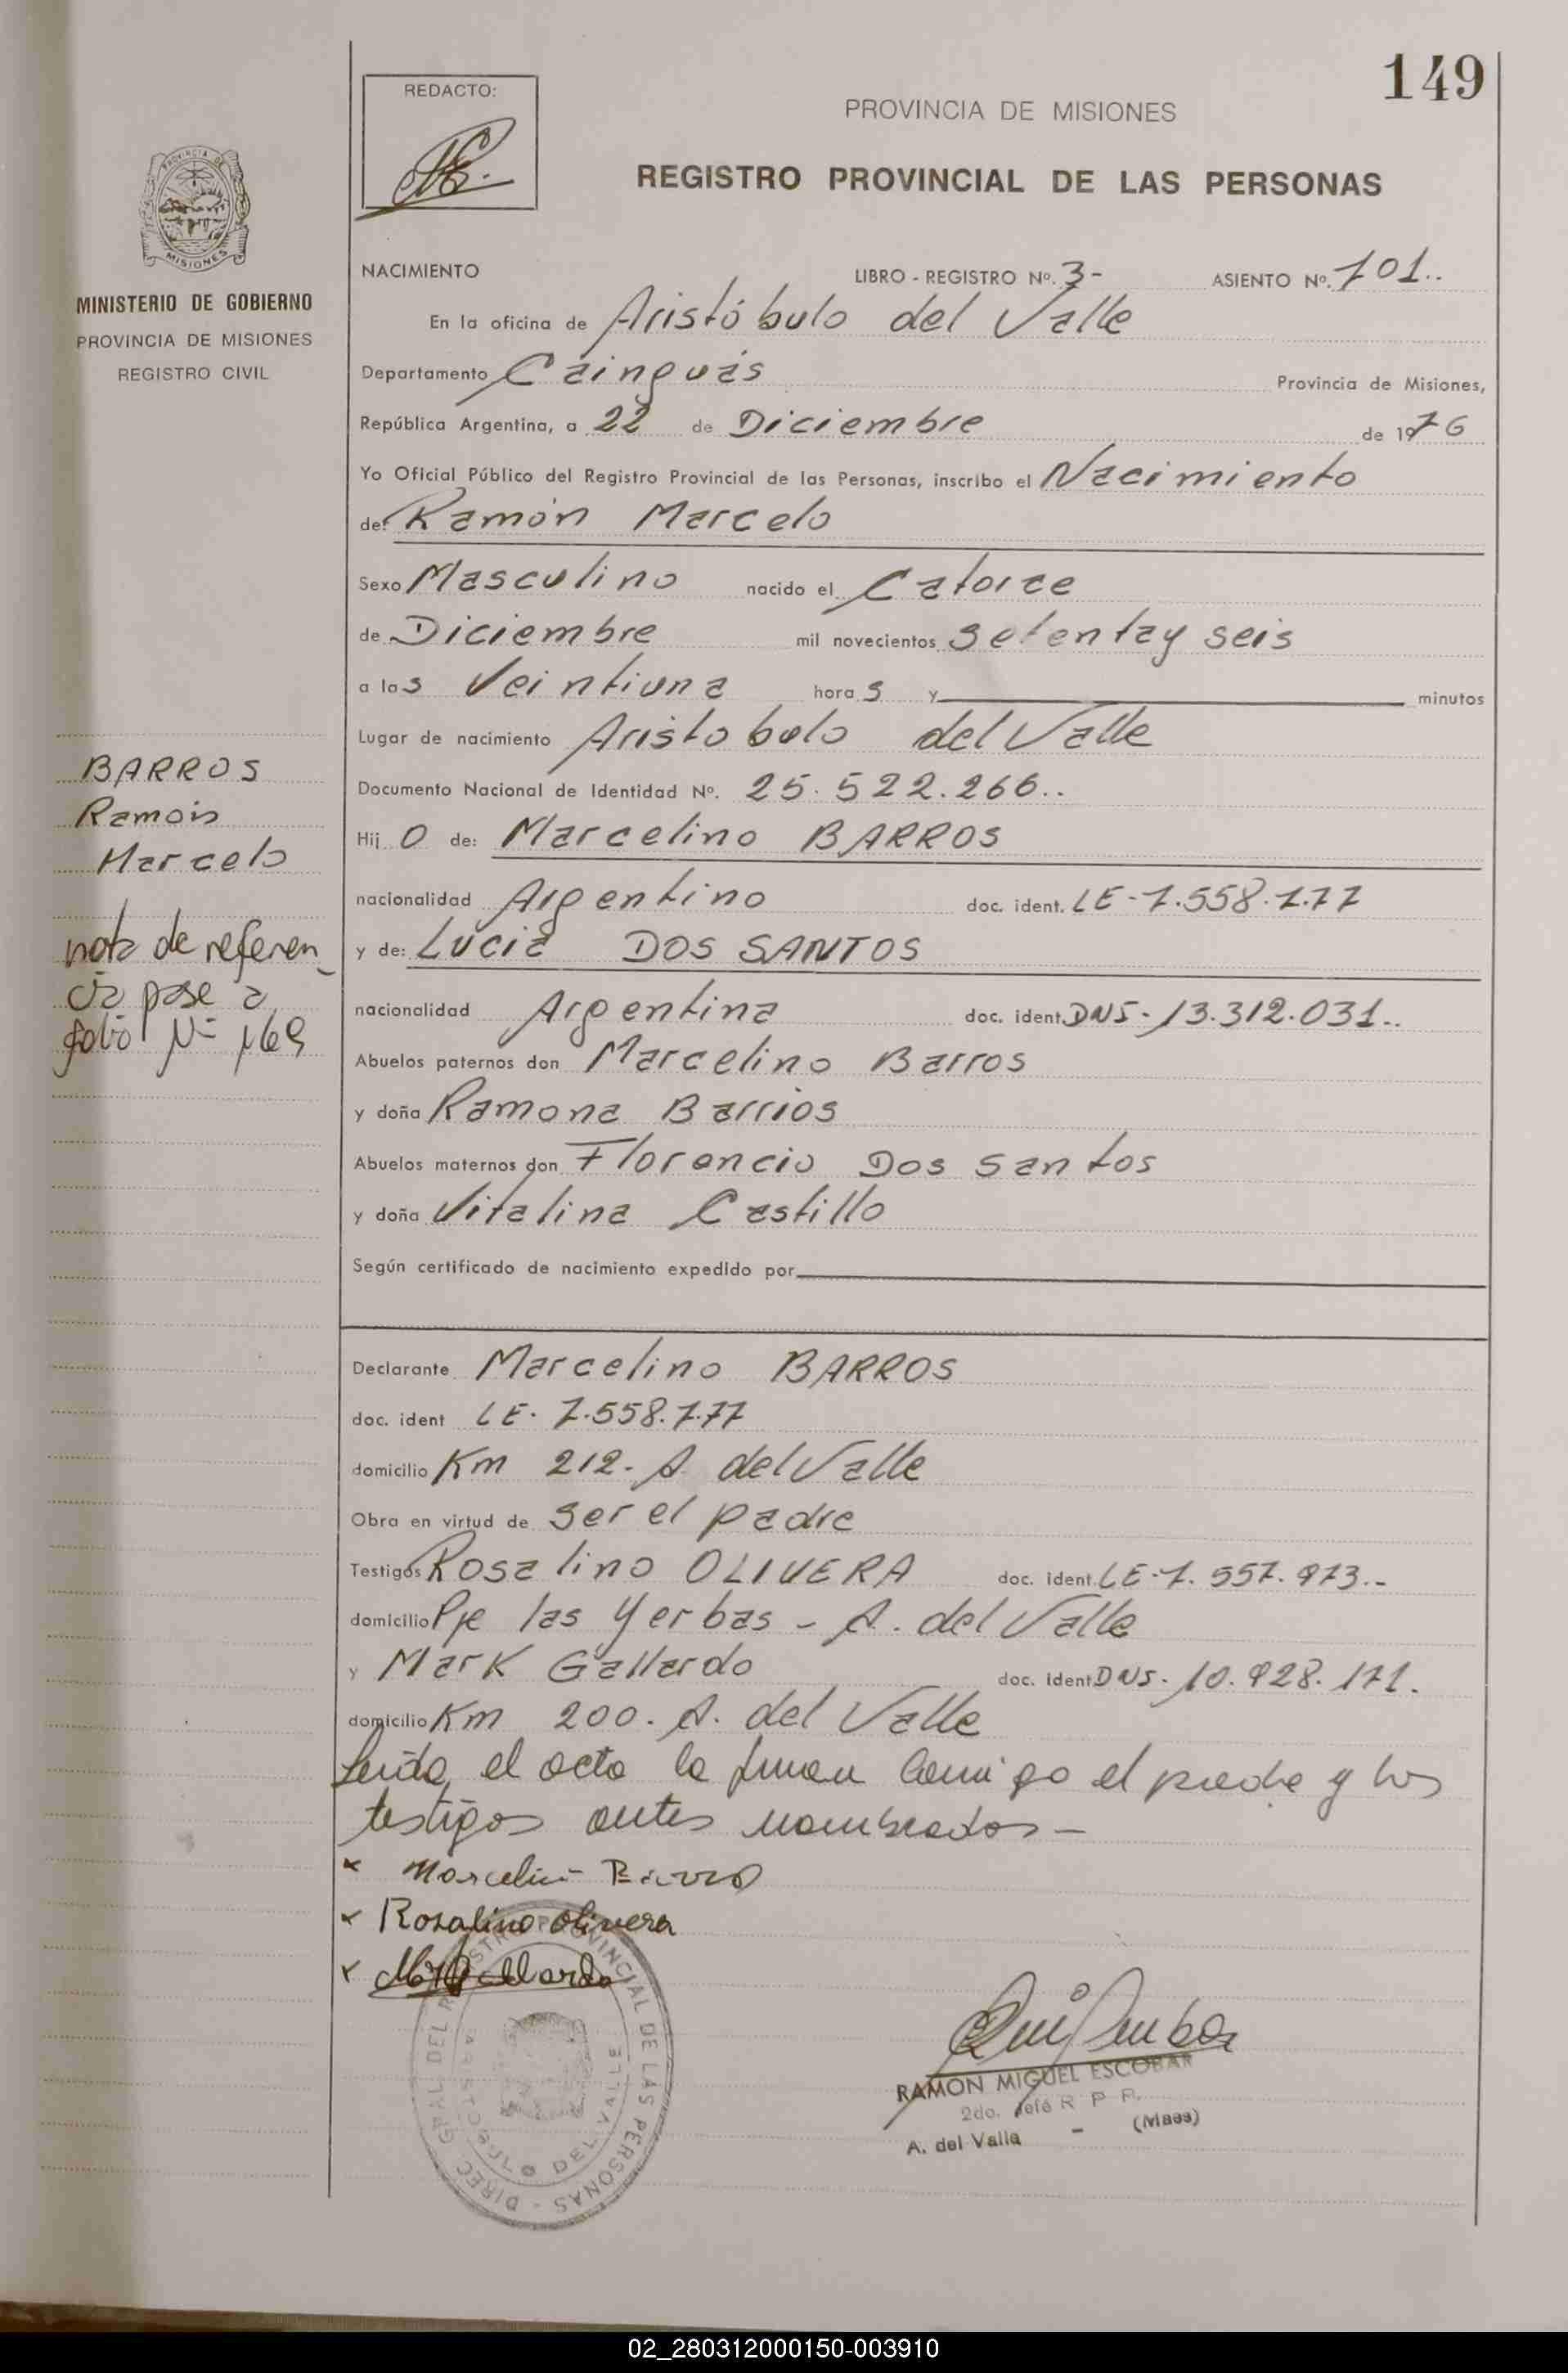 149
REDACTO:
PROVINCIA DE MISIONES
REGISTRO PROVINCIAL DE LAS PERSONAS
PROVINCIA DE
MISIONES
MINISTERIO DE GOBIERNO
PROVINCIA DE MISIONES
REGISTRO CIVIL
NACIMIENTO LIBRO - REGISTRO Nº. 3- ASIENTO Nº. 701..
En la oficina de Aristóbulo del Valle
Departamento Cainguás Provincia de Misiones,
República Argentina, a 22 de Diciembre de 1976
Yo Oficial Público del Registro Provincial de las Personas, inscribo el Nacimiento
de: Ramón Marcelo
Sexo Masculino nacido el Catorce
de Diciembre mil novecientos setentay seis
a las Veintiuna horas y minutos
Lugar de nacimiento Aristobulo del Valle
Documento Nacional de Identidad Nº. 25.522.266..
Hijo de: Marcelino BARROS
nacionalidad Argentino doc. ident. LE-7.558.7.77
y de: Lucia DOS SANTOS
nacionalidad Argentina doc. ident. DNI- 13.312.031..
Abuelos paternos don Marcelino Barros
y doña Ramona Barrios
Abuelos maternos don Florencio Dos Santos
y doña Vitalina Castillo
Según certificado de nacimiento expedido por
BARROS
Ramón
Marcelo
nota de referen_
cia pase a
folio Nº 169
Declarante Marcelino BARROS
doc. ident LE- 7.558.7.77
domicilio Km 212- A. del Valle
Obra en virtud de ser el padre
Testigos Rosalino OLIVERA doc. ident. LE-7.557.973.-
domicilio Pje las Yerbas - A. del Valle
y Mark Gallardo doc. ident DNI- 10.928.171.
domicilio Km 200. A. del Valle
Leida el acta la firman conmigo el padre y los
testigos antes nombrados-
x Marcelino Barro
x Rosalino Olivera
x Gallardo
DIREC GRAL DEL REGISTRO PROVINCIAL DE LAS PERSONAS -
ARISTOBULO DEL VALLE
RAMON MIGUEL ESCOBAR
2do. Jefe R P P.
A. del Valle - (Mnes)
02_280312000150-003910